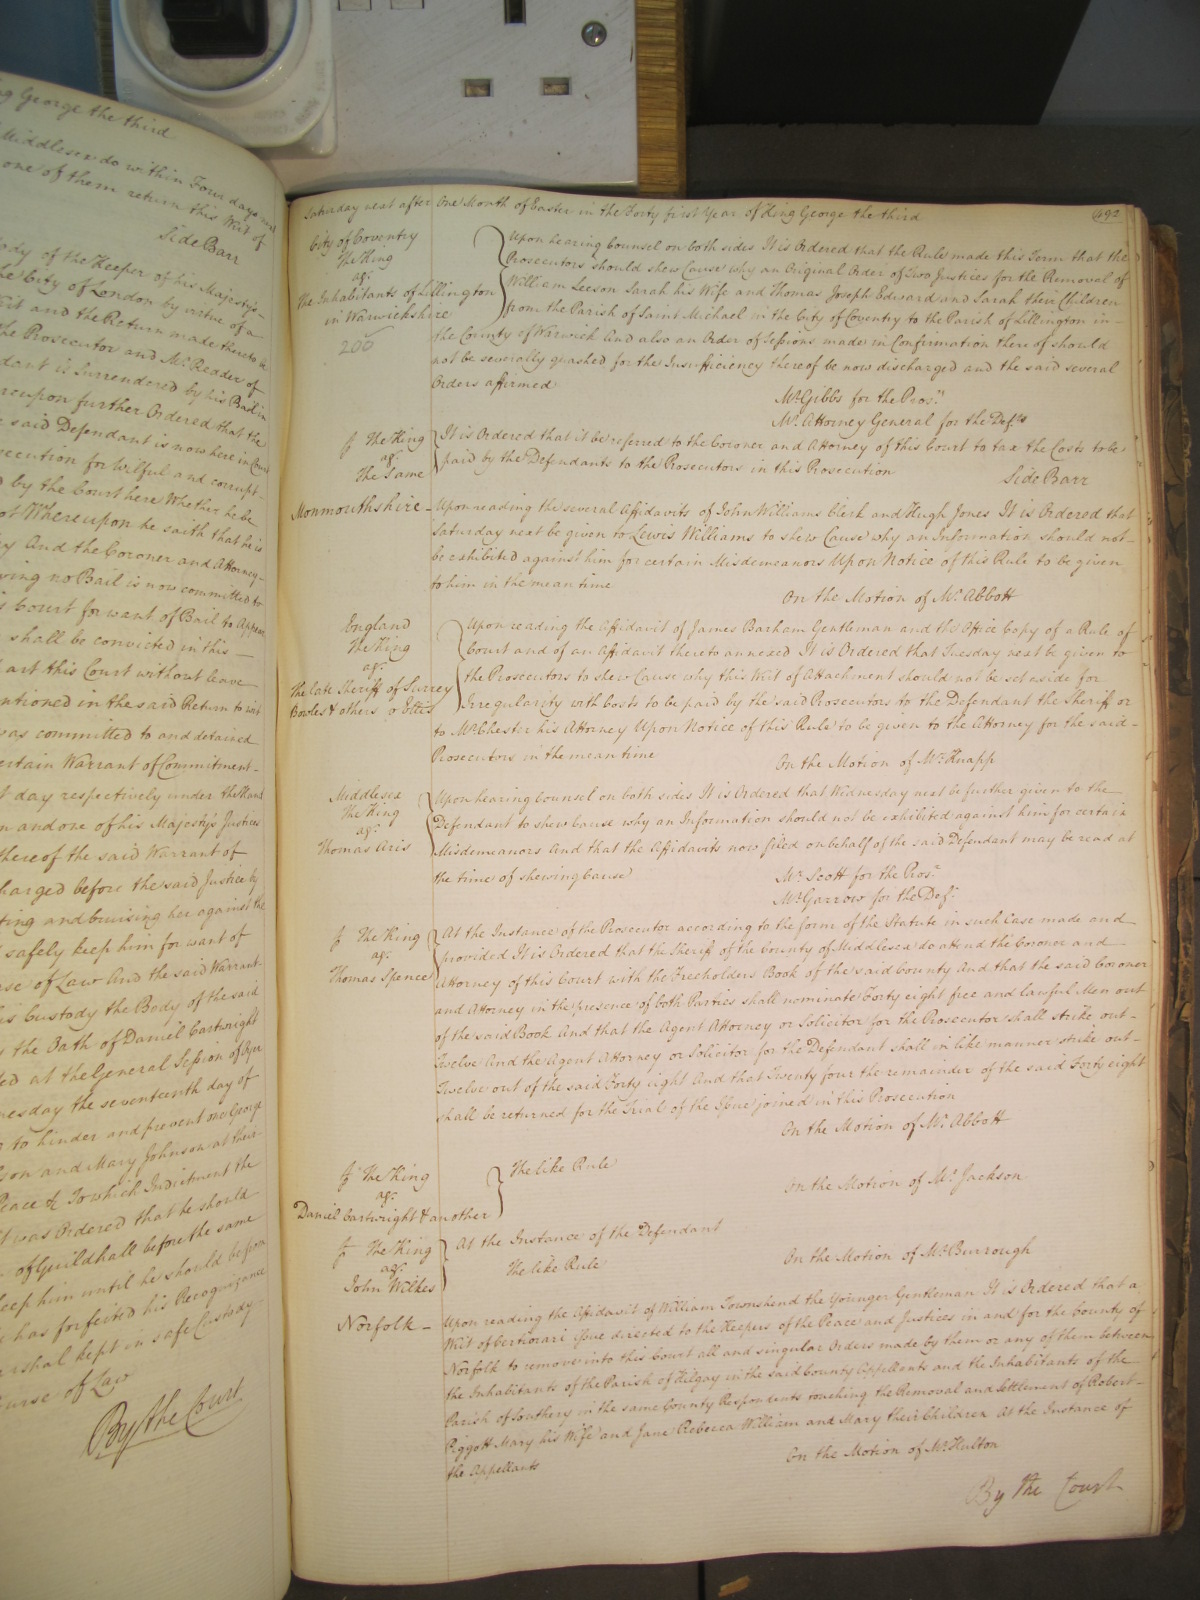 ng George the third
Middlesex do within Four days next
one of them return this Writ of
Side Barr
ody of the Keeper of his Majesty's
he City of London by virtue of a
it and the Return made thereto
the Prosecutor and Mr. Reader of
dant is Surrendered by his Bail in
reupon further Ordered that the
said Defendant is now here in Court
secution for wilful and corrupt
d by the Court here Whether he be
ot Whereupon he saith that he is
y And the Coroner and Attorney
ving no Bail is now committed to
s Court for want of Bail to Appear
shall be convicted in this
art this Court without leave
ntioned in the said Return to wit
was committed to and detained
ertain Warrant of Commitment
t day respectively under the Hand
n and one of his Majesty's Justices
thereof the said Warrant of
harged before the said Justice by
ting and bruising her against the
safely keep him for want of
se of Law And the said Warrant
is Custody the Body of the said
the Oath of Daniel Cartwright
ed at the General Session of Oyer
nesday the seventeenth day of
to hinder and prevent one George
son and Mary Johnson at their
Peace & To which Indictment the
t was Ordered that he should
of Guildhall before the same
keep him until he should be
has forfeited his Recognizance
arshal kept in safe Custody
urse of Law
By the Court
Saturday next after One Month of Easter in the Forty first Year of King George the third
492
City of Coventry
The King
agt.
The Inhabitants of Lillington
in Warwickshire
206
Upon hearing Counsel on both sides It is Ordered that the Rule made this Term that the
Prosecutors should shew Cause why an Original Order of Two Justices for the Removal of
William Leeson Sarah his Wife and Thomas Joseph Edward and Sarah their Children
from the Parish of Saint Michael in the City of Coventry to the Parish of Lillington in
the County of Warwick And also an Order of Sessions made in Confirmation thereof should
not be severally quashed for the Insufficiency thereof be now discharged and the said several
Orders affirmed
Mr. Gibbs for the Prosrs.
Mr. Attorney General for the Defts.
The King
agt.
The Same
It is Ordered that it be referred to the Coroner and Attorney of this Court to tax the Costs to be
paid by the Defendants to the Prosecutors in this Prosecution
Side Barr
Monmouthshire
Upon reading the several Affidavits of John Williams Clerk and Hugh Jones It is Ordered that
Saturday next be given to Lewis Williams to shew Cause why an Information should not
be exhibited against him for certain Misdemeanors Upon Notice of this Rule to be given
to him in the mean time
On the Motion of Mr. Abbott
England
The King
agt.
The late Sheriff of Surrey
Bowles & others v Ettis
Upon reading the Affidavit of James Barham Gentleman and the Office Copy of a Rule of
Court and of an Affidavit thereto annexed It is Ordered that Tuesday next be given to
the Prosecutors to shew Cause why this Writ of Attachment should not be set aside for
Irregularity with Costs to be paid by the said Prosecutors to the Defendant the Sheriff or
to Mr. Chester his Attorney Upon Notice of this Rule to be given to the Attorney for the said
Prosecutors in the mean time
On the Motion of Mr. Knapp
Middlesex
The King
agt.
Thomas Aris
Upon hearing Counsel on both sides It is Ordered that Wednesday next be further given to the
Defendant to shew Cause why an Information should not be exhibited against him for certain
Misdemeanors And that the Affidavits now filed on behalf of the said Defendant may be read at
the time of shewing Cause
Mr. Scott for the Prosr.
Mr. Garrow for the Deft.
The King
agt.
Thomas Spence
At the Instance of the Prosecutor according to the form of the Statute in such Case made and
provided It is Ordered that the Sheriff of the County of Middlesex do attend the Coroner and
Attorney of this Court with the Freeholders Book of the said County And that the said Coroner
and Attorney in the presence of both Parties shall nominate Forty eight free and lawful Men out
of the said Book And that the Agent Attorney or Solicitor for the Prosecutor shall strike out
Twelve And the Agent Attorney or Solicitor for the Defendant shall in like manner strike out
Twelve out of the said Forty eight And that Twenty four the remainder of the said Forty eight
shall be returned for the Trial of the Issue joined in this Prosecution
On the Motion of Mr. Abbott
The King
agt.
Daniel Cartwright & another
The like Rule
On the Motion of Mr. Jackson
The King
agt.
John Wilkes
At the Instance of the Defendant
The like Rule
On the Motion of Mr. Burrough
Norfolk
Upon reading the Affidavit of William Townshend the Younger Gentleman It is Ordered that a
Writ of Certiorari Issue directed to the Keepers of the Peace and Justices in and for the County of
Norfolk to remove into this Court all and singular Orders made by them or any of them between
the Inhabitants of the Parish of Hilgay in the said County Appellants and the Inhabitants of the
Parish of Southery in the same County Respondents touching the Removal and Settlement of Robert
Piggott Mary his Wife and Jane Rebecca William and Mary their Children At the Instance of
the Appellants
On the Motion of Mr. Hulton
By the Court